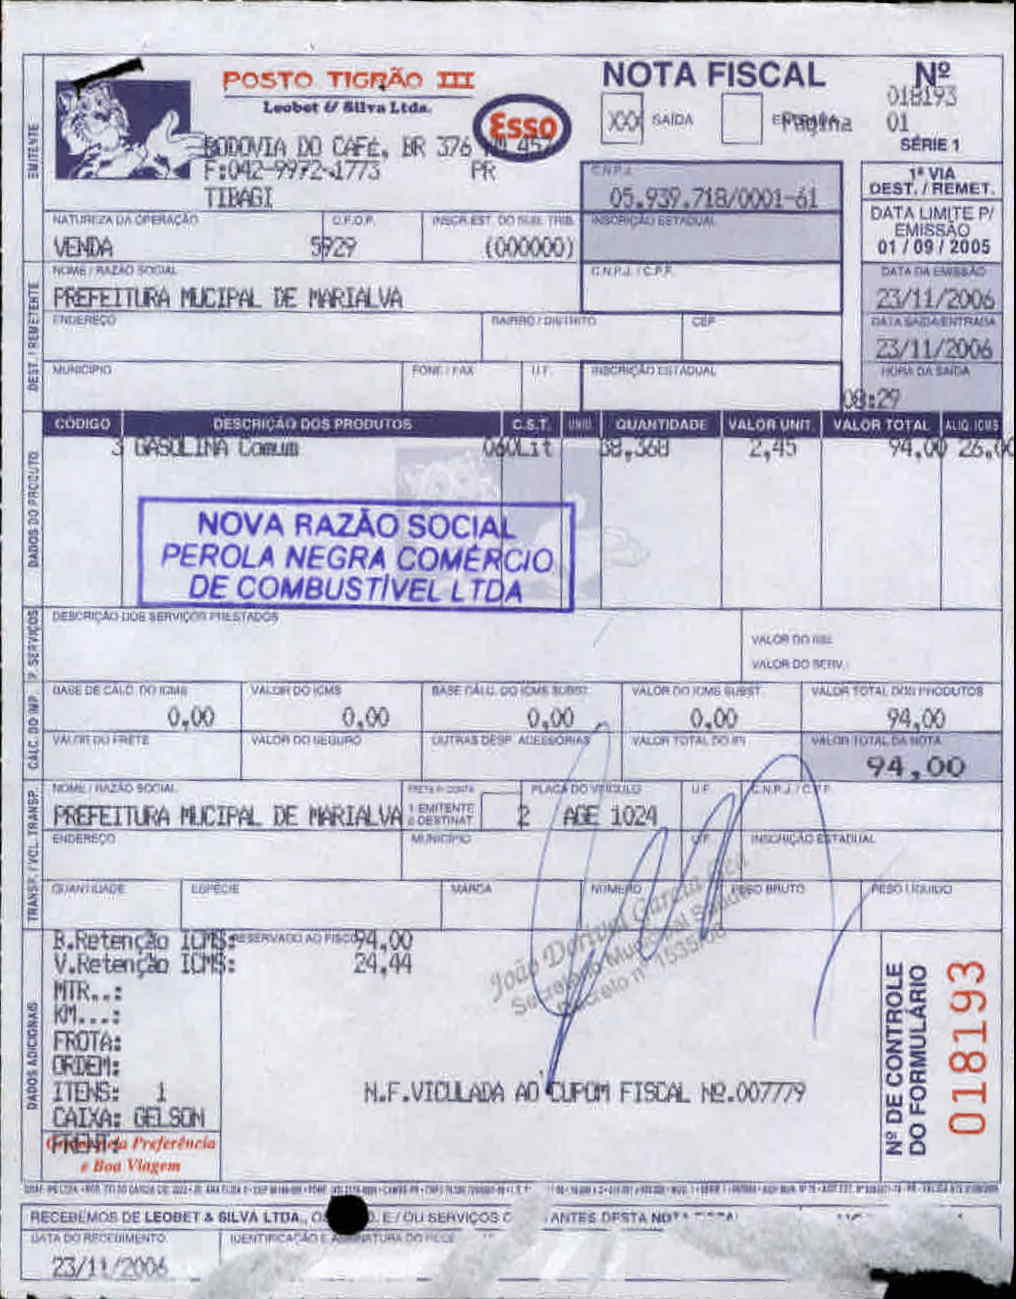 EMITENTE
POSTO TIGRÃO III
Leobet & Silva Ltda.
Esso
RODOVIA DO CAFÉ, BR 376 457
F:042-9972-1773 PR
TIBAGI
NOTA FISCAL
XXX SAÍDA
Página
Nº
018193
01
SÉRIE 1
C.N.P.J.
05.939.718/0001-61
1ª VIA
DEST. / REMET.
DATA LIMITE P/
EMISSÃO
01 / 09 / 2005
NATUREZA DA OPERAÇÃO C.F.O.P. INSCR.EST. DO SUB. TRIB. INSCRIÇÃO ESTADUAL
VENDA 5929 (000000)
DEST. / REMETENTE
NOME / RAZÃO SOCIAL C.N.P.J. / C.P.F. DATA DA EMISSÃO
PREFEITURA MUCIPAL DE MARIALVA 23/11/2006
ENDEREÇO BAIRRO / DISTRITO CEP DATA SAÍDA/ENTRADA
23/11/2006
MUNICÍPIO FONE / FAX U.F. INSCRIÇÃO ESTADUAL HORA DA SAÍDA
08:29
DADOS DO PRODUTO
CÓDIGO DESCRIÇÃO DOS PRODUTOS C.S.T. UNID QUANTIDADE VALOR UNIT. VALOR TOTAL ALIQ. ICMS
3 GASOLINA Comum 060Lit 38,368 2,45 94,00 26,00
NOVA RAZÃO SOCIAL
PEROLA NEGRA COMÉRCIO
DE COMBUSTÍVEL LTDA
P. SERVIÇOS
DESCRIÇÃO DOS SERVIÇOS PRESTADOS
VALOR DO ISS:
VALOR DO SERV.:
CALC. DO IMP.
BASE DE CALC. DO ICMS VALOR DO ICMS BASE CÁLC. DO ICMS SUBST. VALOR DO ICMS SUBST. VALOR TOTAL DOS PRODUTOS
0,00 0,00 0,00 0,00 94,00
VALOR DO FRETE VALOR DO SEGURO OUTRAS DESP. ACESSÓRIAS VALOR TOTAL DO IPI VALOR TOTAL DA NOTA
94,00
TRANSP. / VOL. TRANSP.
NOME / RAZÃO SOCIAL FRETE P/ CONTA PLACA DO VEÍCULO U.F. C.N.P.J. / C.P.F.
PREFEITURA MUCIPAL DE MARIALVA 1 EMITENTE 2 DESTINAT 2 AGE 1024
ENDEREÇO MUNICÍPIO U.F. INSCRIÇÃO ESTADUAL
QUANTIDADE ESPÉCIE MARCA NÚMERO PESO BRUTO PESO LÍQUIDO
DADOS ADICIONAIS
B.Retenção ICMS: RESERVADO AO FISCO 94,00
V.Retenção ICMS: 24,44
MTR..:
KM...:
FROTA:
ORDEM:
ITENS: 1
CAIXA: GELSON
FRENT:
Preferência
e Boa Viagem
João Dorival Garcia
Secretário Municipal Saúde
Decreto nº 1535/06
N.F.VICULADA AO CUPOM FISCAL Nº.007779
Nº DE CONTROLE
DO FORMULÁRIO
018193
RECEBEMOS DE LEOBET & SILVA LTDA., E / OU SERVIÇOS ANTES DESTA NOTA
DATA DO RECEBIMENTO IDENTIFICAÇÃO E ASSINATURA DO
23/11/2006